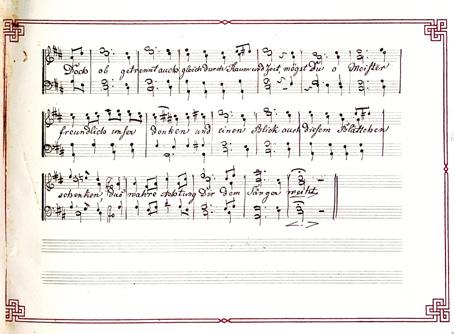 Doch ob getrennt auch gleich durch Raum und Zeit, mögst Du o Meister
freundlich unser denken und einen Blick auch diesem Blättchen
schenken, das wahre Achtung Dir dem Sänger weiht.